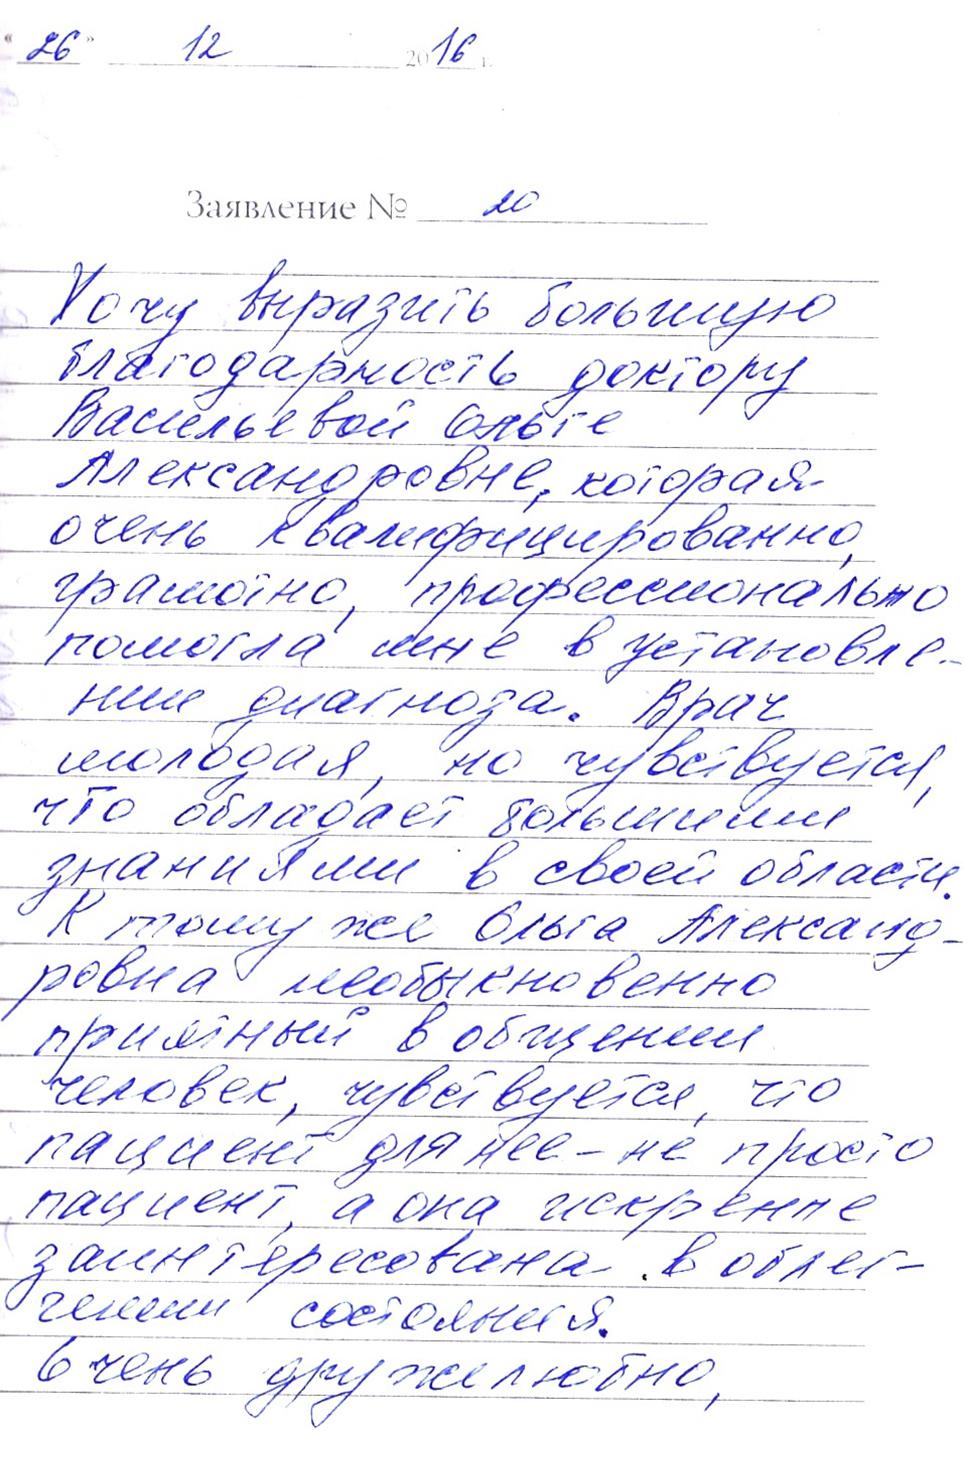 "26" 12 2016 г.
Заявление № 20
Хочу выразить большую
благодарность доктору
Васильевой Ольге
Александровне, которая
очень квалифицированно,
грамотно, профессионально
помогла мне в установле-
нии диагноза. Врач
молодая, но чувствуется,
что обладает большими
знаниями в своей области.
К тому же Ольга Александ-
ровна необыкновенно
приятный в общении
человек, чувствуется, что
пациент для нее - не просто
пациент, а она искренне
заинтересована в облег-
чении состояния.
Очень дружелюбно,